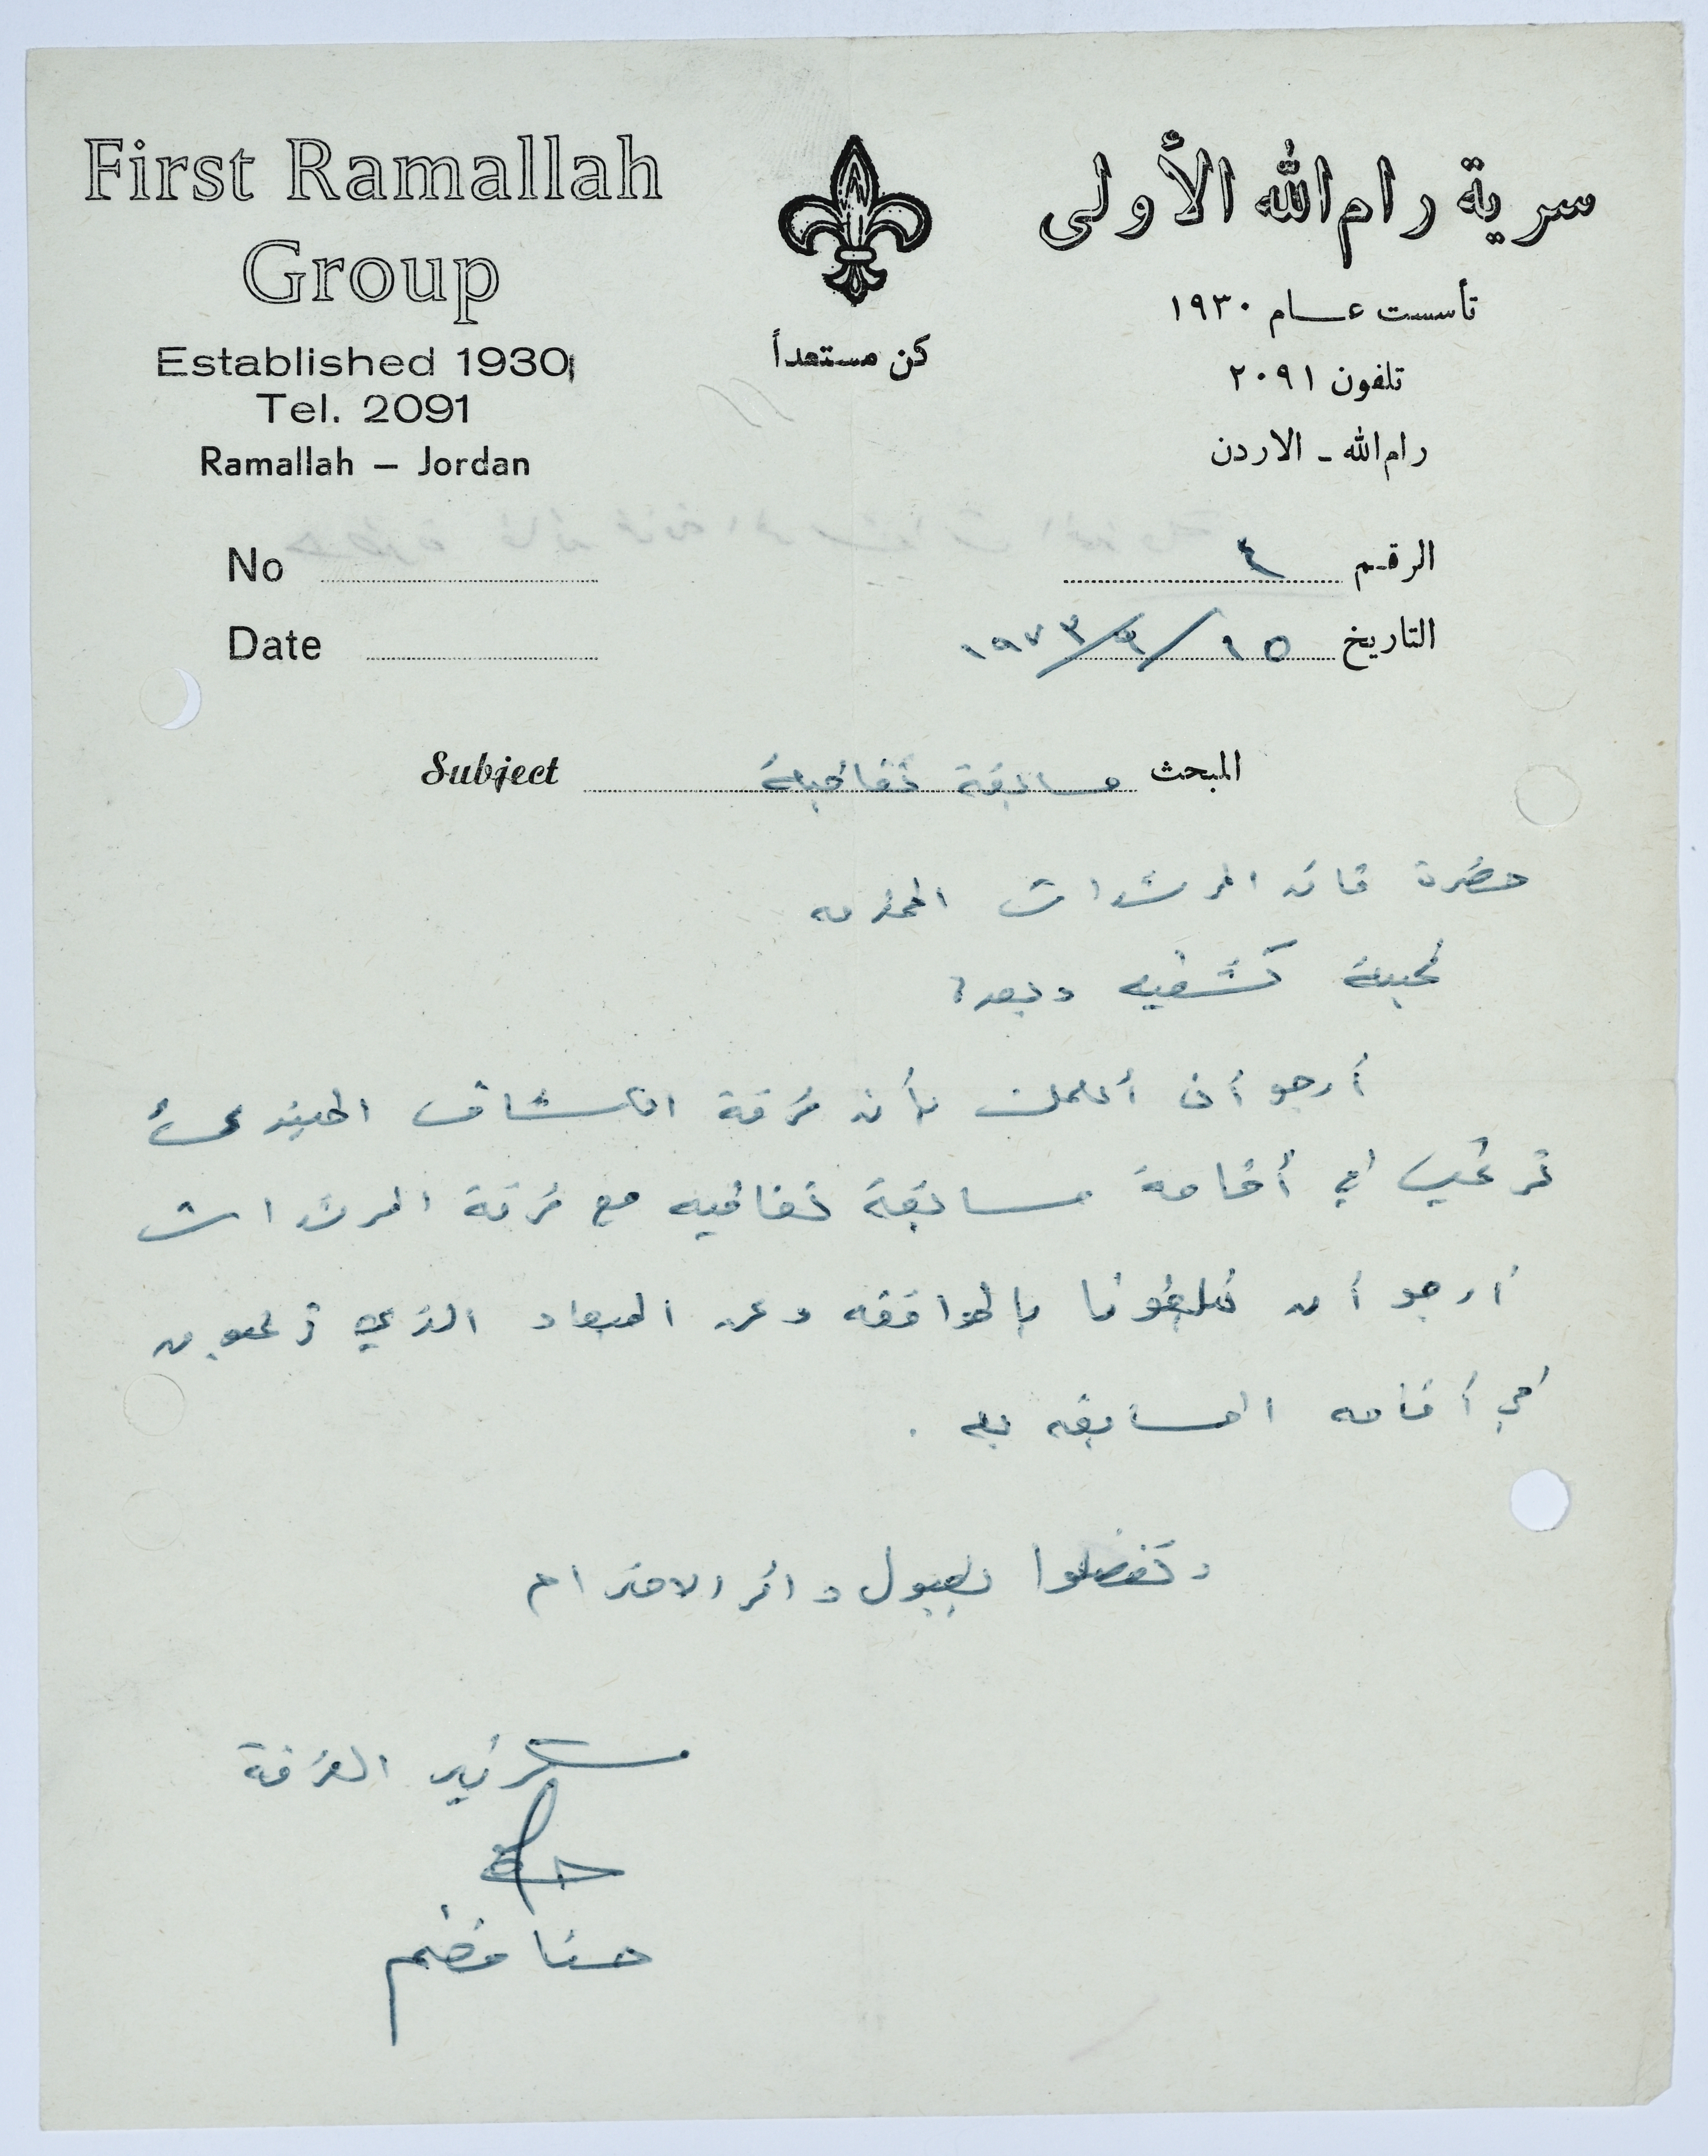 First Ramallah
Group
Established 1930
Tel. 2091
Ramallah – Jordan
كن مستعداً
سرية رام الله الأولى
تأسست عام ١٩٣٠
تلفون ٢٠٩١
رام الله - الاردن
No
Date
الرقم ٤
التاريخ ١٥/٩/١٩٧٣
Subject
المبحث مسابقة ثقافية
حضرة قائد المرشدات المحترمه
تحية كشفيه وبعد؛
أرجو أن أعلمك بأن فرقة الكشاف المبتدئ
ترغب في أقامة مسابقة ثقافيه مع فرقة المرشدات
أرجو أن تبلغونا بالموافقه وعن الميعاد الذي ترغبون
في أقامه المسابقه به .
وتفضلوا بقبول وافر الاحترام
سكرتير الفرقة
حنا